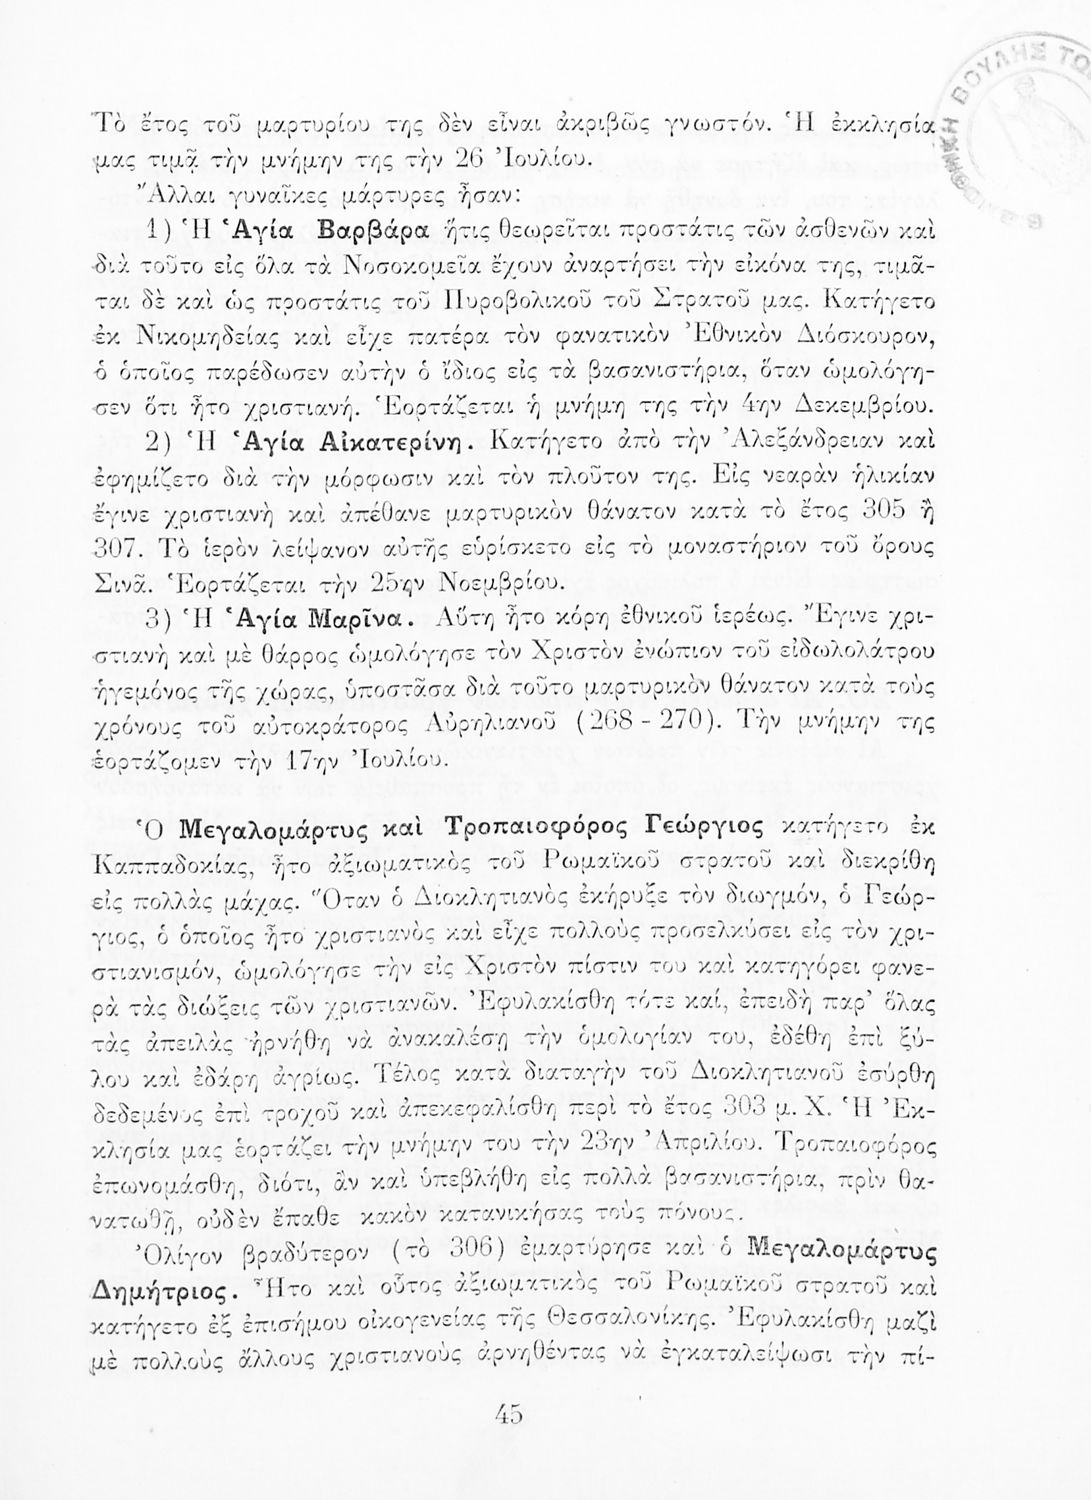 ΒΟΥΛΗΣ ΤΩ
Τὸ ἔτος τοῦ μαρτυρίου της δὲν εἶναι ἀκριβῶς γνωστόν. Ἡ ἐκκλησία
μας τιμᾷ τὴν μνήμην της τὴν 26 Ἰουλίου.
Ἄλλαι γυναῖκες μάρτυρες ἦσαν:
1) Ἡ Ἁγία Βαρβάρα ἥτις θεωρεῖται προστάτις τῶν ἀσθενῶν καὶ
διὰ τοῦτο εἰς ὅλα τὰ Νοσοκομεῖα ἔχουν ἀναρτήσει τὴν εἰκόνα της, τιμᾶ-
ται δὲ καὶ ὡς προστάτις τοῦ Πυροβολικοῦ τοῦ Στρατοῦ μας. Κατήγετο
ἐκ Νικομηδείας καὶ εἶχε πατέρα τὸν φανατικὸν Ἐθνικὸν Διόσκουρον,
ὁ ὁποῖος παρέδωσεν αὐτὴν ὁ ἴδιος εἰς τὰ βασανιστήρια, ὅταν ὡμολόγη-
σεν ὅτι ἦτο χριστιανή. Ἑορτάζεται ἡ μνήμη της τὴν 4ην Δεκεμβρίου.
2) Ἡ Ἁγία Αἰκατερίνη. Κατήγετο ἀπὸ τὴν Ἀλεξάνδρειαν καὶ
ἐφημίζετο διὰ τὴν μόρφωσιν καὶ τὸν πλοῦτον της. Εἰς νεαρὰν ἡλικίαν
ἔγινε χριστιανὴ καὶ ἀπέθανε μαρτυρικὸν θάνατον κατὰ τὸ ἔτος 305 ἢ
307. Τὸ ἱερὸν λείψανον αὐτῆς εὑρίσκετο εἰς τὸ μοναστήριον τοῦ ὄρους
Σινᾶ. Ἑορτάζεται τὴν 25ην Νοεμβρίου.
3) Ἡ Ἁγία Μαρῖνα. Αὕτη ἦτο κόρη ἐθνικοῦ ἱερέως. Ἔγινε χρι-
στιανὴ καὶ μὲ θάρρος ὡμολόγησε τὸν Χριστὸν ἐνώπιον τοῦ εἰδωλολάτρου
ἡγεμόνος τῆς χώρας, ὑποστᾶσα διὰ τοῦτο μαρτυρικὸν θάνατον κατὰ τοὺς
χρόνους τοῦ αὐτοκράτορος Αὐρηλιανοῦ (268 - 270). Τὴν μνήμην της
ἑορτάζομεν τὴν 17ην Ἰουλίου.
Ὁ Μεγαλομάρτυς καὶ Τροπαιοφόρος Γεώργιος κατήγετο ἐκ
Καππαδοκίας, ἦτο ἀξιωματικὸς τοῦ Ρωμαϊκοῦ στρατοῦ καὶ διεκρίθη
εἰς πολλὰς μάχας. Ὅταν ὁ Διοκλητιανὸς ἐκήρυξε τὸν διωγμόν, ὁ Γεώρ-
γιος, ὁ ὁποῖος ἦτο χριστιανὸς καὶ εἶχε πολλοὺς προσελκύσει εἰς τὸν χρι-
στιανισμόν, ὡμολόγησε τὴν εἰς Χριστὸν πίστιν του καὶ κατηγόρει φανε-
ρὰ τὰς διώξεις τῶν χριστιανῶν. Ἐφυλακίσθη τότε καί, ἐπειδὴ παρ' ὅλας
τὰς ἀπειλὰς ἠρνήθη νὰ ἀνακαλέσῃ τὴν ὁμολογίαν του, ἐδέθη ἐπὶ ξύ-
λου καὶ ἐδάρη ἀγρίως. Τέλος κατὰ διαταγὴν τοῦ Διοκλητιανοῦ ἐσύρθη
δεδεμένος ἐπὶ τροχοῦ καὶ ἀπεκεφαλίσθη περὶ τὸ ἔτος 303 μ. Χ. Ἡ Ἐκ-
κλησία μας ἑορτάζει τὴν μνήμην του τὴν 23ην Ἀπριλίου. Τροπαιοφόρος
ἐπωνομάσθη, διότι, ἂν καὶ ὑπεβλήθη εἰς πολλὰ βασανιστήρια, πρὶν θα-
νατωθῇ, οὐδὲν ἔπαθε κακὸν κατανικήσας τοὺς πόνους.
Ὀλίγον βραδύτερον (τὸ 306) ἐμαρτύρησε καὶ ὁ Μεγαλομάρτυς
Δημήτριος. Ἦτο καὶ οὗτος ἀξιωματικὸς τοῦ Ρωμαϊκοῦ στρατοῦ καὶ
κατήγετο ἐξ ἐπισήμου οἰκογενείας τῆς Θεσσαλονίκης. Ἐφυλακίσθη μαζὶ
μὲ πολλοὺς ἄλλους χριστιανοὺς ἀρνηθέντας νὰ ἐγκαταλείψωσι τὴν πί-
45